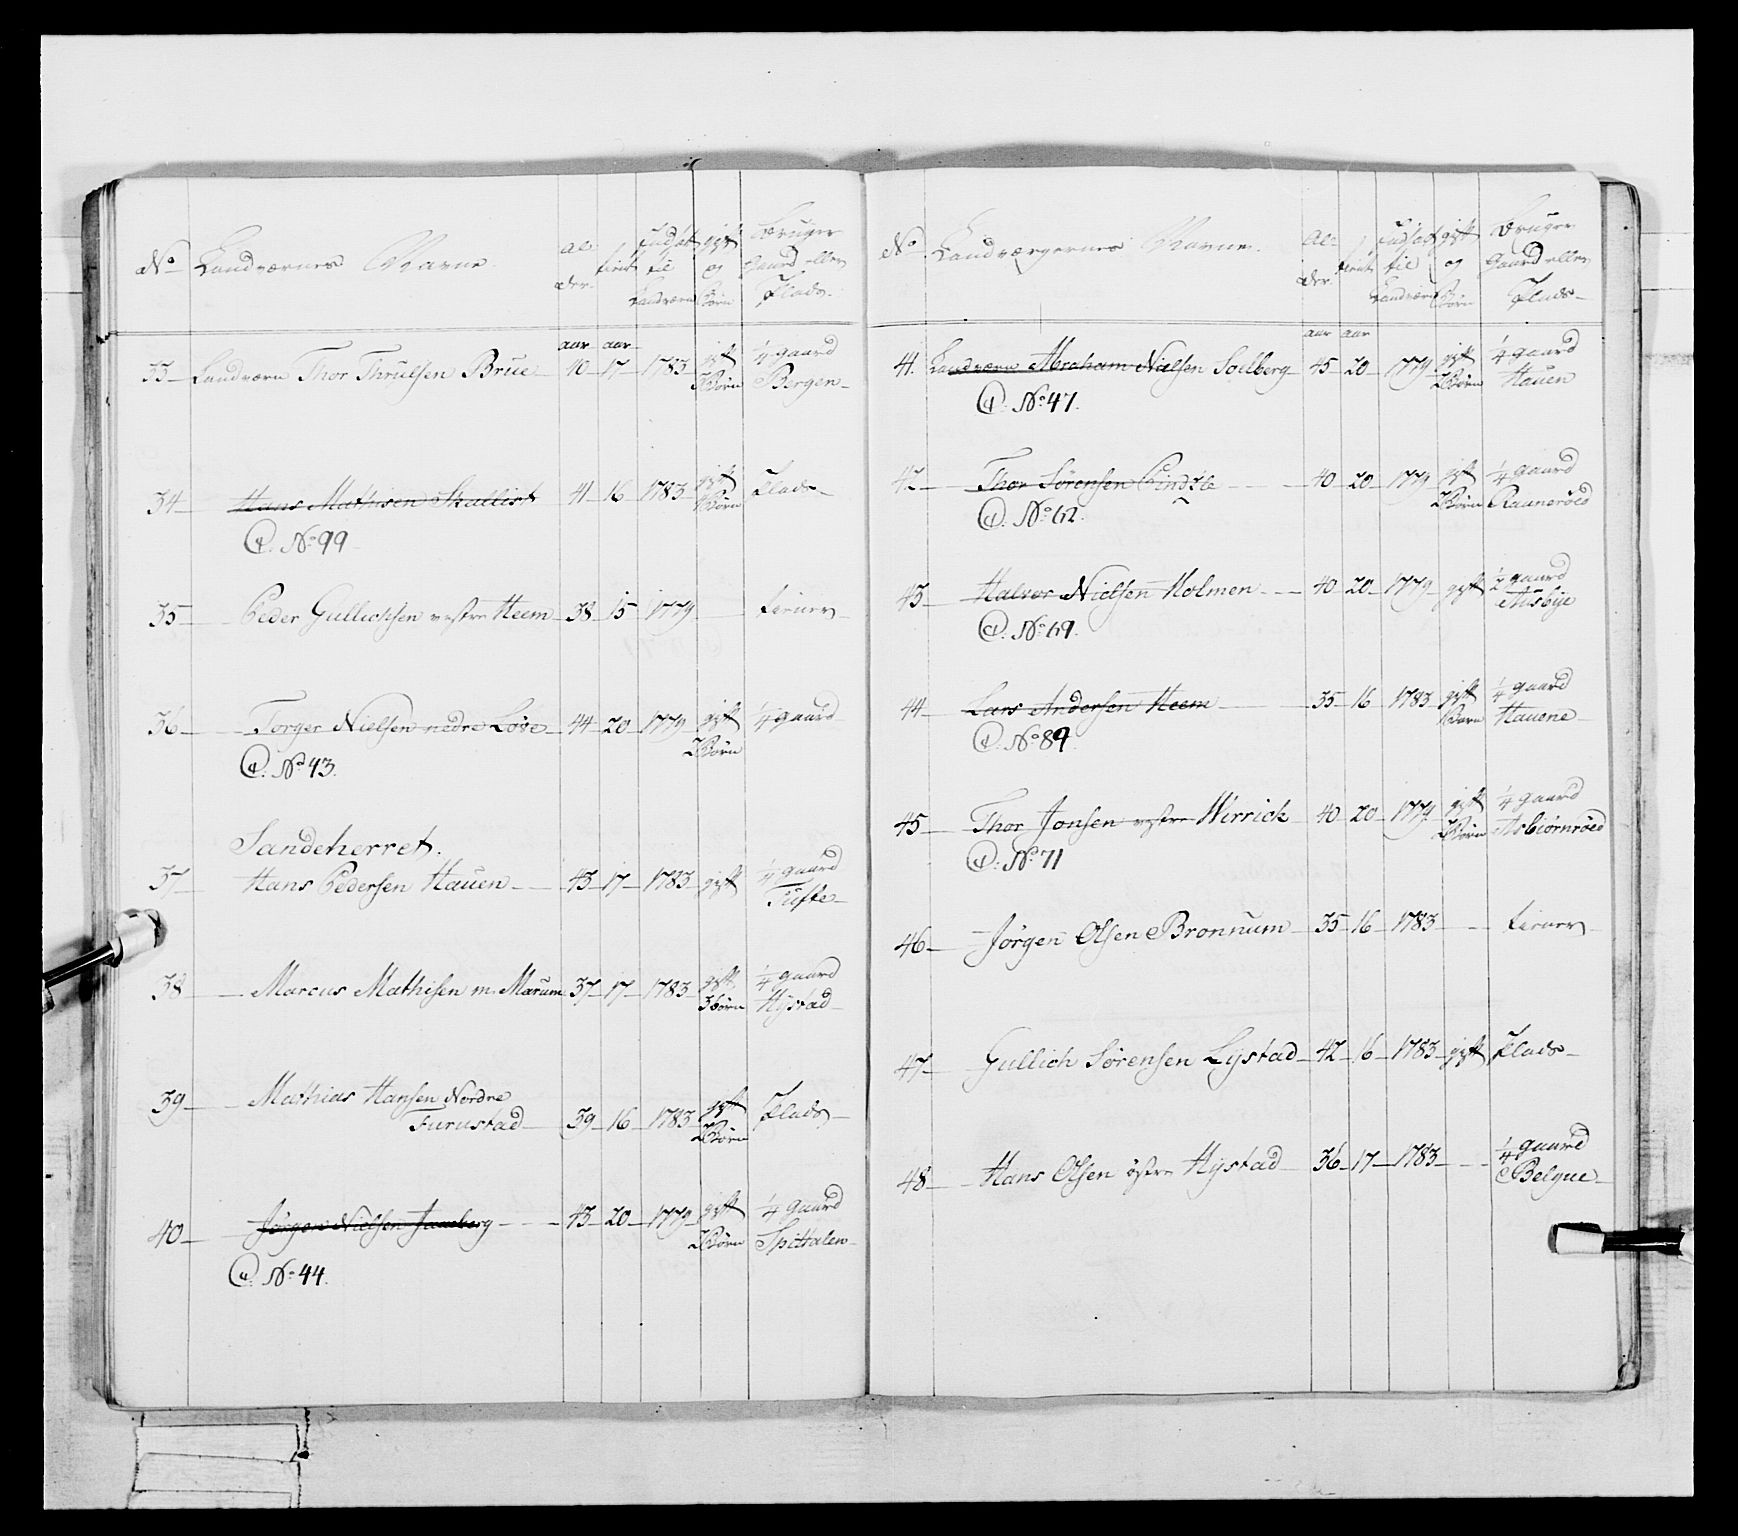 No Landværnes Navne Al- der. tient Indsat til Landværn gift og Børn Bruger Gaard eller Plads.
aar aar
33 Landværn Thor Thrulsen Brue 40 17 1783 gift 2 Børn 1/4 gaard Bergen
34 Hans Mathisen Skallist 41 16 1783 gift 1 Børn Plads
No 99
35 Peder Gullichsen vestre Heem 38 15 1779 tiener
36 Torger Nielsen nedre Løve 44 20 1779 gift 2 Børn 1/4 gaard
No 43.
Sandeherret.
37 Hans Pedersen Hauen 43 17 1783 gift 1/4 gaard Tufte
38 Marcus Mathisen m. Marum 37 17 1783 gift 3 børn 1/4 gaard Hystad
39 Mathias Hansen Nordre
Furustad 39 16 1783 gift 2 Børn Plads
40 Jørgen Nielsen 43 20 1779 gift 2 Børn 1/4 Gaard Spittalen
No 44.
No Landværgernes Navne. Al- der. tient Indsat til Landværn gift og Børn Bruger Gaard eller Plads
aar aar
41. Landværn Abraham Nielsen Solberg 45 20 1779 gift 2 Børn 1/4 gaard Hauen
No 47.
42 Thor Sørensen 40 20 1779 gift 2 Børn 1/4 gaard Rauneröed
No 62.
43 Halvor Nielsen Holmen 40 20 1779 gift 1/2 gaard Ausbye
No 69.
44 Lars Andersen Heem 35 16 1783 gift 1 Børn 1/4 gaard Hauene
No 89
45 Thor Jonsen vestre Wirrick 40 20 1779 gift 2 Børn 1/4 gaard Asbiörnröed
No 71
46 Jørgen Olsen Bronnum 35 16 1783 tiener
47 Gullich Sørensen Lystad 42 16 1783 gift Plads
48 Hans Olsen östre Hystad 36 17 1783 1/4 gaard Belgue